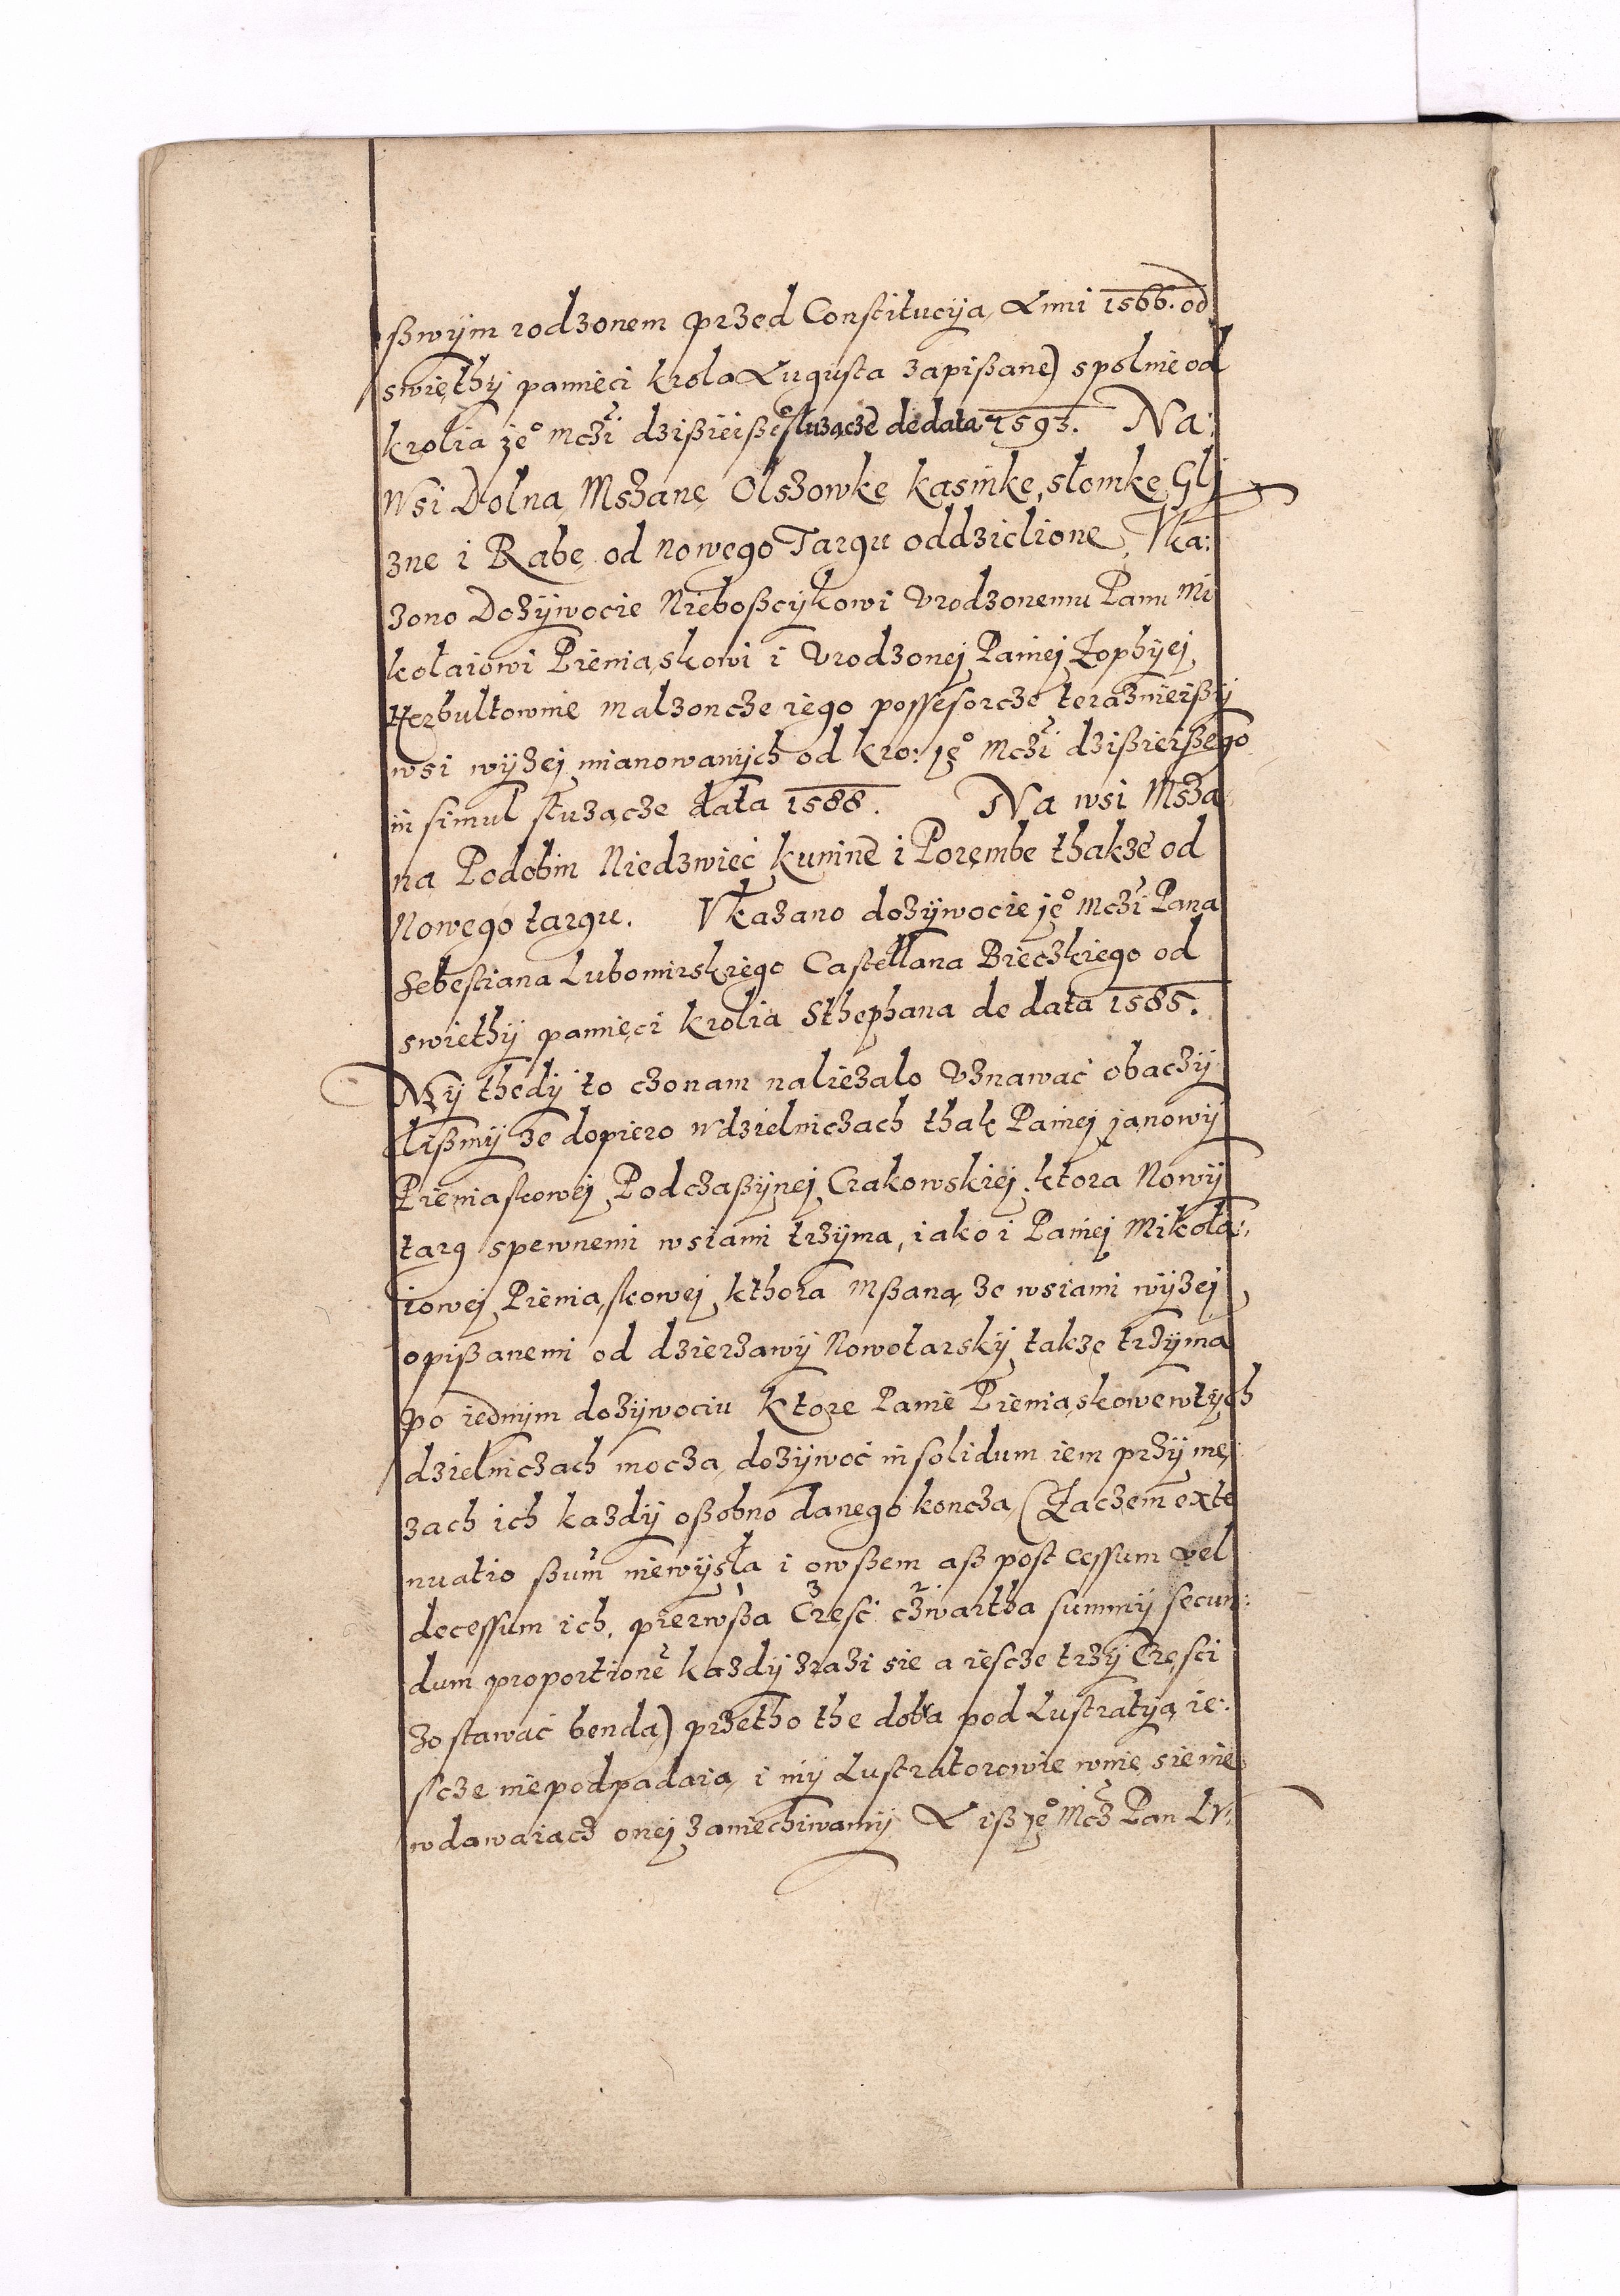 ßwÿm rodzonem przed Constitucÿją Anni 1566. od
swięthÿ pamięci krola Augusta zapißane) spolnie od
krolia jeº mczi dzißieißeº służącze de data 1593. Na:
Wsi Dolną Mszanę Olszowkę kasinkę, słomkę Gli
znę i Rabę od Nowego Targu oddzielione, Vka:
zono Dożÿwocie Nieboßcÿkowi Vrodzonemu Panu Mi
kołaiowi Pieniąskowi i Vrodzonej Paniej Zophÿej
Herbultownie malzoncze iego possesorcze teraznieißÿ
wsi wÿżej mianowanÿch od kro: jeº Mczi dzißieißego
in simul służącze data 1588. Na wsi Msza
ną Podobin Niedzwieć kuninę i Porembę thakze od
Nowego targu. Vkazano dożÿwocie jeº mczi Pana
Sebestiana Lubomirskiego Castellana Bieczkiego od
swiethÿ pamięci krolia Sthephana de data 1585.
Mÿ thedÿ to czo nam naliezalo Vznawać obaczÿ
lißmÿ ze dopiero w dzielniczach thak Paniej janowÿ
Pieniąskowej Podczaßÿnej Crakowskiej, ktora Nowÿ
targ spewnemi wsiami trzÿma, iako i Paniej Mikoła:
iowej Pieniąskowej kthora Mßaną ze wsiami wÿżej
opißanemi od dzierzawÿ Nowotarskÿ takze trzÿma
po iednÿm dożÿwociu ktore Panie Pieniąskowe wtÿch
dzielniczach moczą dożÿwoć in solidum iem przÿ mę
zach ich kazdÿ oßobno danego konczą (Zaczem exte
nuatio ßum̃ niewÿsła i owßem aß post cessum vel
decessum ich, pierwßa Częsć czwartha summÿ secun:
dum proportionẽ kazdÿ zrazi sie a iescze trzÿ Częsci
zostawać bendą) przetho the dobra pod Lustratÿą ie:
scze niepodpadaią i mÿ Lustratorowie w nie sie nie
wdawaiącz onej zaniechiwamÿ A iß jeº Mcz Pan Lv: